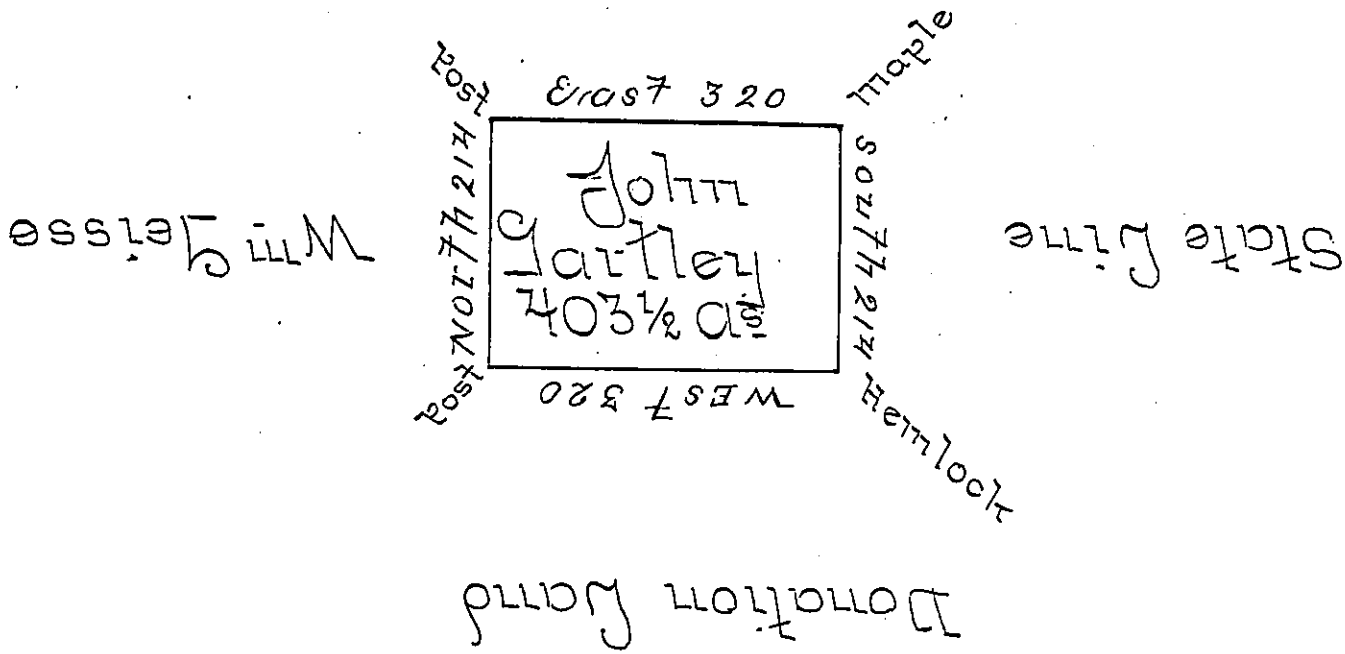 Post
East 320
maple
North 214
South 214
John
Gartley
403½ a.s
Wm Geisse
State Line
Post
West 320
Hemlock
Donation Land